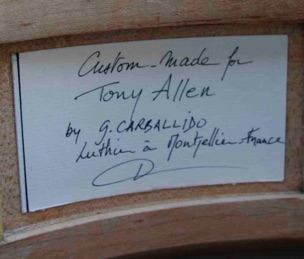 Custom-made for
Tony Allen
by G. CARBALLIDO
Luthier à Montpellier-France